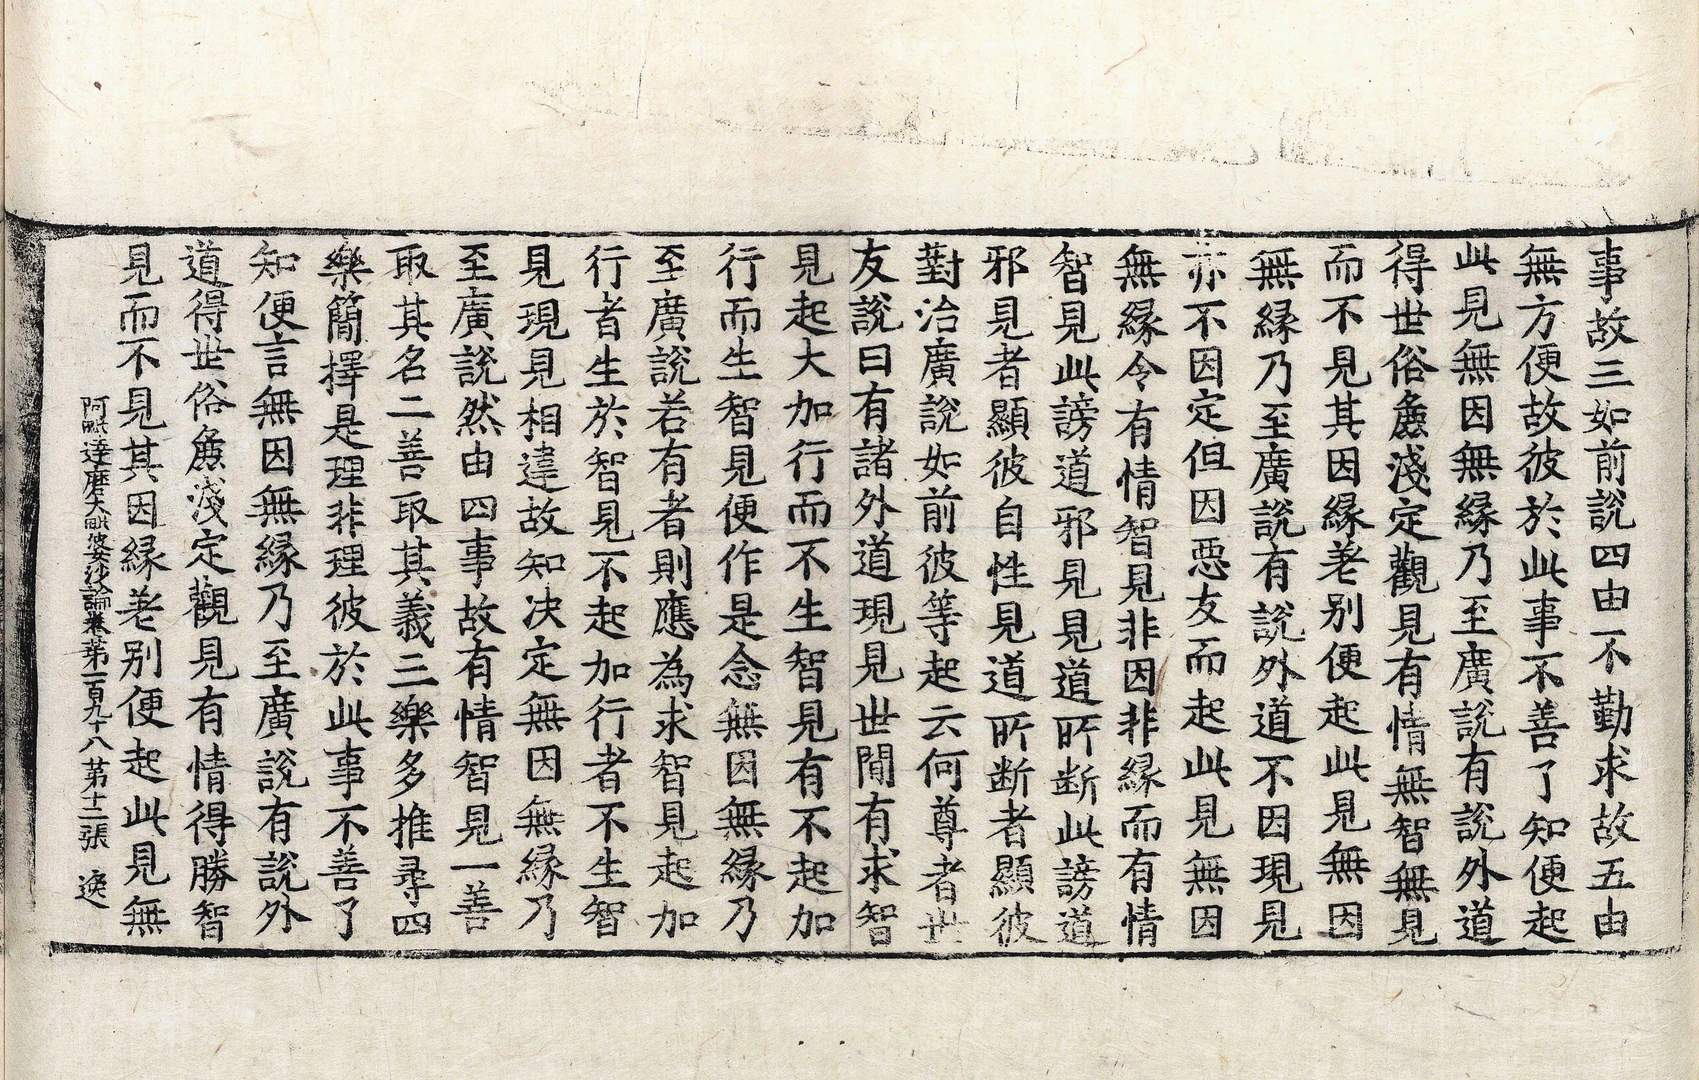 事故三如前說四由不勤求故五由
無方便故彼於此事不善了知便起
此見無因無縁乃至廣說有說外道
得世俗麁淺定觀見有情無智無見
而不見其因縁差别便起此見無因
無縁乃至廣說有說外道不因現見
亦不因定但因惡友而起此見無因
無縁令有情智見非因非縁而有情
智見此謗道邪見見道所断此謗道
邪見者顯彼自性見道所断者顯彼
對治廣說如前彼等起云何尊者世
友說曰有諸外道現見世間有求智
見起大加行而不生智見有不起加
行而生智見便作是念無因無縁乃
至廣說若有者則應為求智見起加
行者生於智見不起加行者不生智
見現見相違故知决定無因無縁乃
至廣說然由四事故有情智見一善
取其名二善取其義三樂多推尋四
樂簡擇是理非理彼於此事不善了
知便言無因無縁乃至廣說有說外
道得世俗麁淺定觀見有情得勝智
見而不見其因縁差别便起此見無
阿毗達磨大毗婆沙論卷第一百九十八第十二張 逸